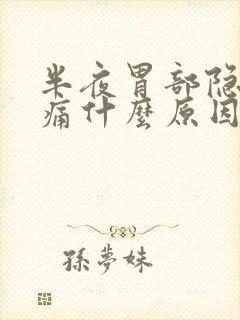 半夜胃部隐
痛什麼原因
孫夢妹